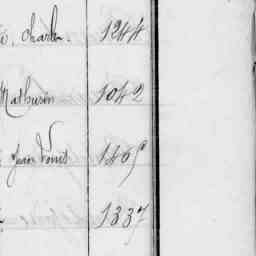 , Charles. 1244
Mathurin 1042
Jean Louis 1405
1337